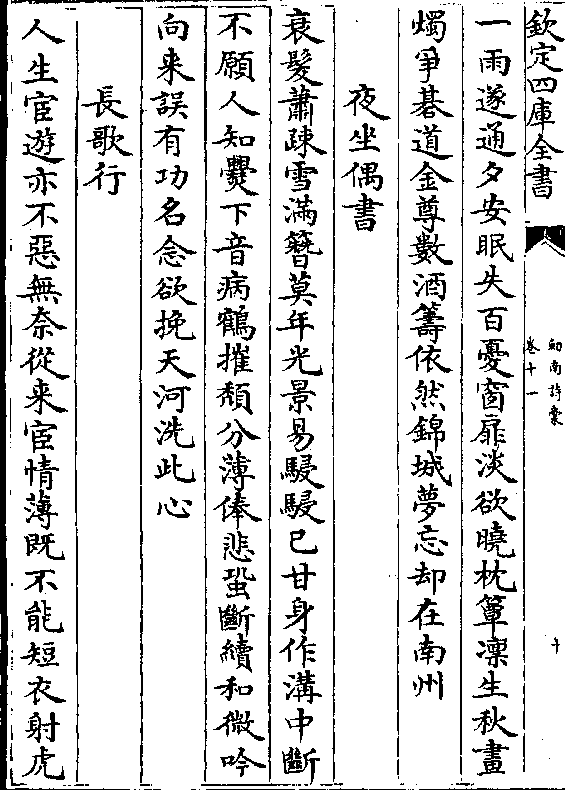 欽定四庫全書
劍南詩稾
卷十一
十
一雨遂通夕安眠失百憂窗扉淡欲曉枕簟凜生秋畫
燭爭棊道金尊數酒籌依然錦城夢忘却在南州
夜坐偶書
衰髮蕭疎雪滿簪莫年光景易駸駸已甘身作溝中斷
不願人知爨下音病鶴摧頽分薄俸悲蛩斷續和微吟
向来誤有功名念欲挽天河洗此心
長歌行
人生宦遊亦不惡無奈從来宦情薄既不能短衣射虎